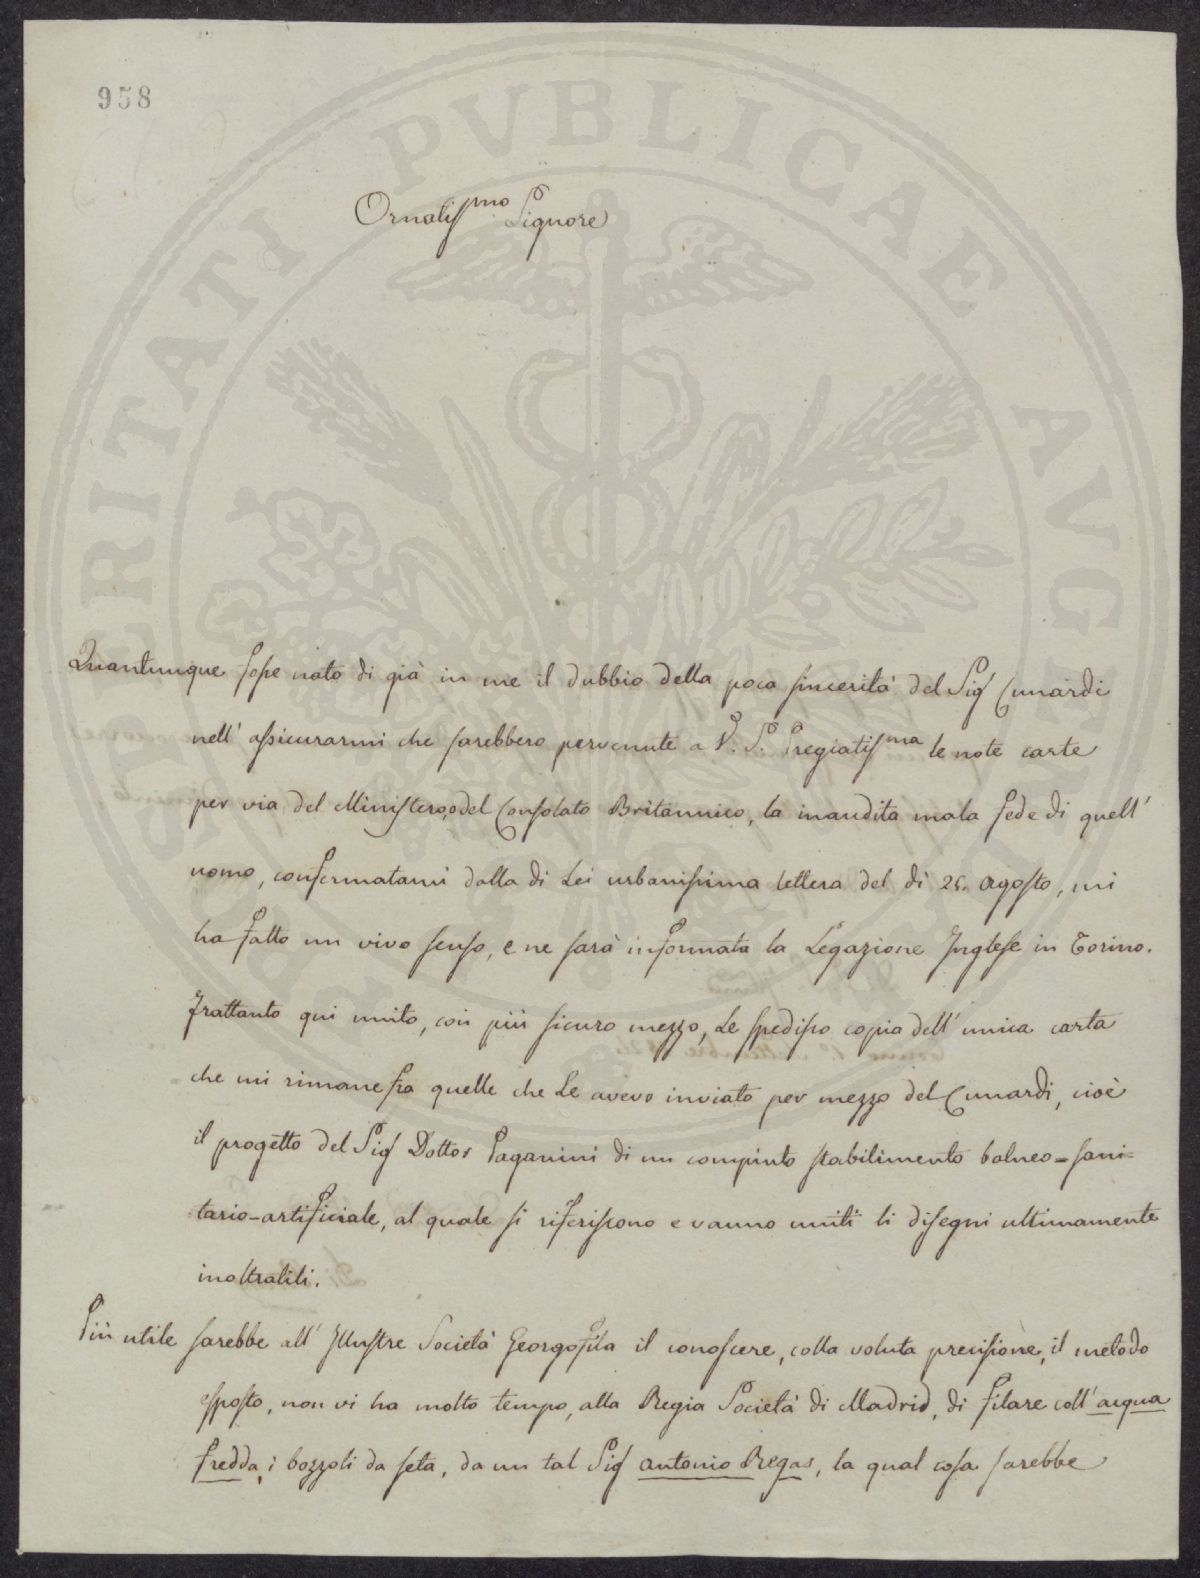 958
PROSPERITATI PVBLICAE AVGENDAE
Ornatissmo Signore
Quantunque fosse nato di già in me il dubbio della poca sincerità del Sig Cunardi
nell' assicurarmi che sarebbero pervenute a V. S. Pregiatissma le note carte
per via del Ministero, o del Consolato Britannico, la inaudita mala fede di quell'
uomo, confermatami dalla di Lei urbanissima lettera del dì 25. Agosto, mi
ha fatto un vivo senso, e ne sarà informata la Legazione Inglese in Torino.
Frattanto qui unito, con più sicuro mezzo, Le spedisco copia dell' unica carta
che mi rimane fra quelle che Le avevo inviato per mezzo del Cunardi, cioè
il progetto del Sig Dottor Paganini di un compiuto stabilimento balneo=sani=
tario-artificiale, al quale si riferiscono e vanno uniti li disegni ultimamente
inoltratili.
Più utile sarebbe all' Illustre Società Georgofila il conoscere, colla voluta precisione, il metodo
esposto, non vi ha molto tempo, alla Regia Società di Madrid, di filare coll' acqua
fredda, i bozzoli da seta, da un tal Sig Antonio Regas, la qual cosa sarebbe